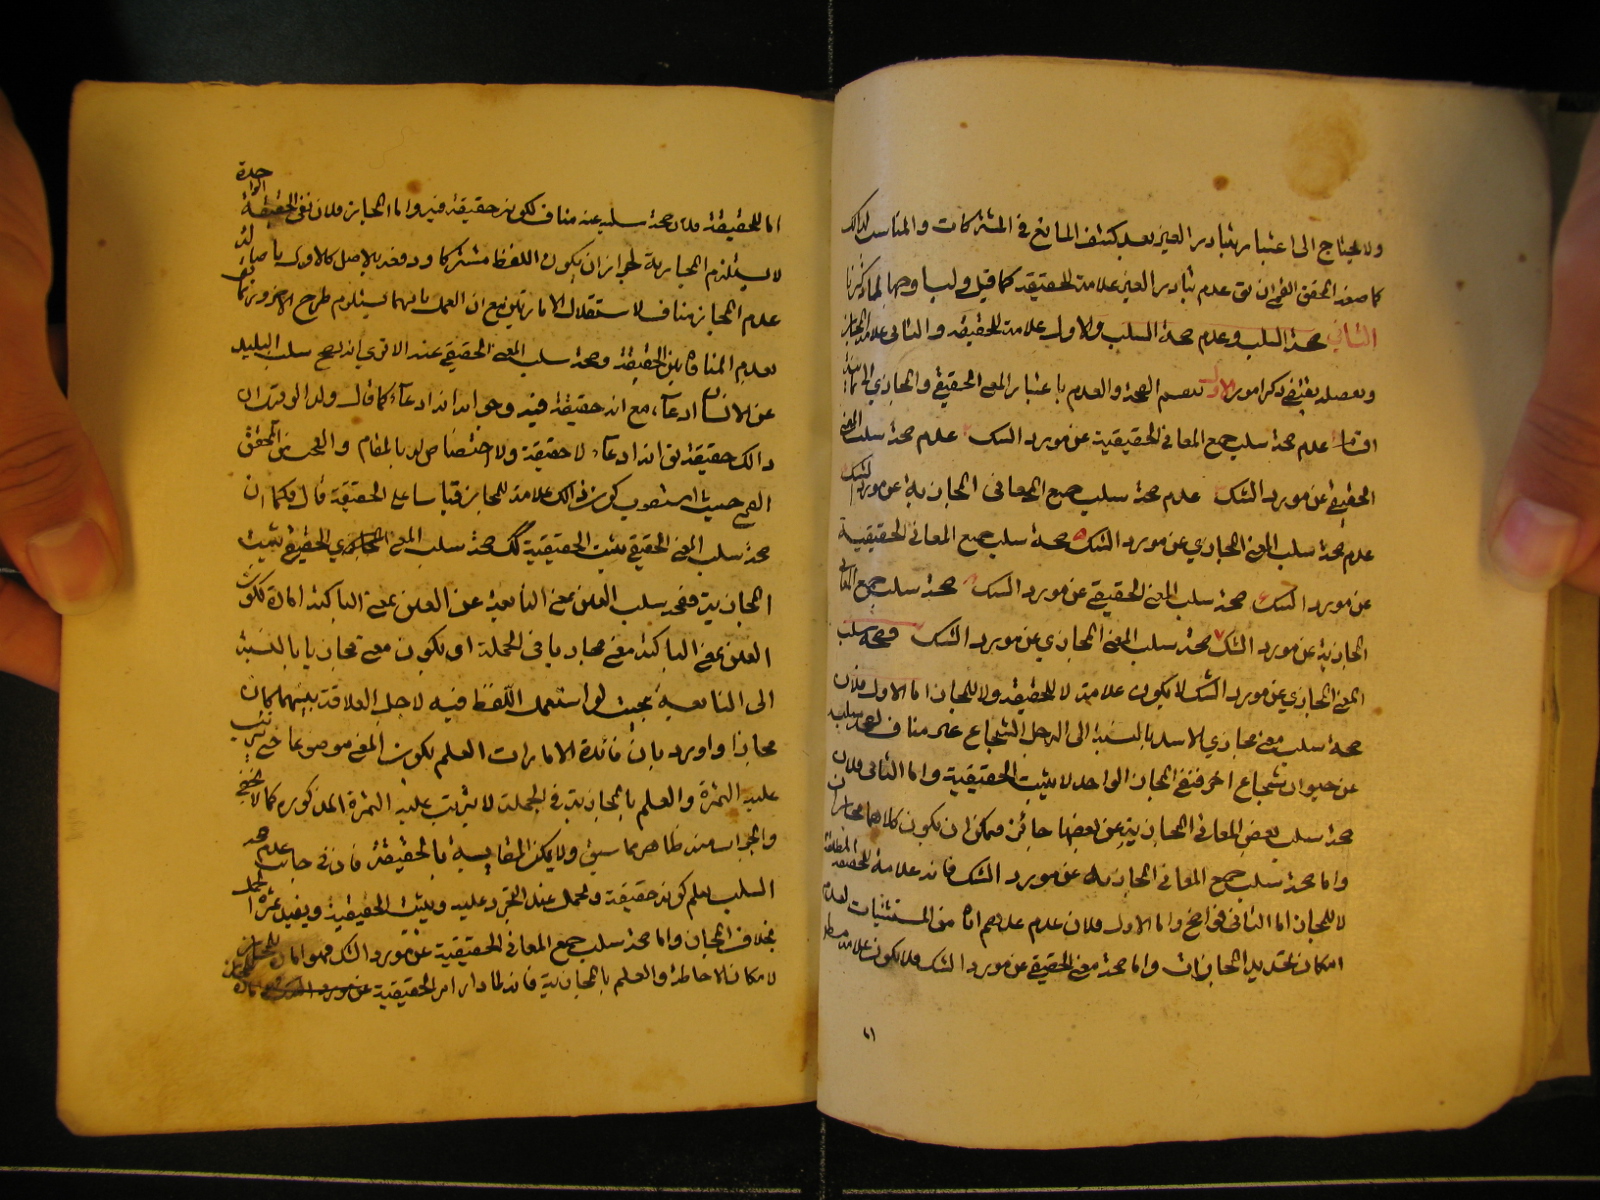 ولا يحتاج الى اعتبار تبادر الغير بعد كشف المانع في المشتركات والمناسب لذلك
كما صنعه المحقق القمي ان يق عدم تبادر الغير علامة الحقيقة كما قيل وليسا وجها لما ذكرنا
الثاني صحة السلب وعدم صحة السلب والاول علامة للحقيقة والثاني علامة المجاز
وتفصيله يقتضي ذكر امور الاول ينقسم الصحة والعدم باعتبار المعنى الحقيقي والمجازي الى ثمانية
اقسام عدم صحة سلب جميع المعاني الحقيقية عن مورد الشك عدم صحة سلب المعنى
الحقيقي عن مورد الشك عدم صحة سلب جميع المعاني المجازية عن مورد الشك
عدم صحة سلب المعنى المجازي عن مورد الشك صحة سلب جميع المعاني الحقيقية
عن مورد الشك صحة سلب المعنى الحقيقي عن مورد الشك صحة سلب جميع المعاني
المجازية عن مورد الشك صحة سلب المعنى المجازي عن مورد الشك وصحة سلب
المعنى المجازي عن مورد الشك لا يكون علامة لا للحقيقة ولا للمجاز اما الاول فلان
صحة سلب معنى مجازي للاسد بالنسبة الى الرجل الشجاع غير مناف لعدم سلبه
عن حيوان شجاع اخر فنفي المجاز الواحد لا يثبت الحقيقية واما الثاني فلان
صحة سلب بعض المعاني المجازية عن بعضها جائز فيمكن ان يكون كلاهما مجازان
واما صحة سلب جميع المعاني المجازية عن مورد الشك فانه علامة للحقيقة المطلقة
لا للمجاز اما الثاني فواضح واما الاول فلان عدم علاقتهم من المستثنيات لعدم
امكان تحديد المجازات واما صحة معنى الحقيقي عن مورد الشك فلا يكون علامة مط
٦١
اما للحقيقة فلان صحة سلبه عنه مناف لكونه حقيقة فيه واما المجاز فلان نفي الحقيقة
الواحدة
لا يستلزم المجازية لجواز ان يكون اللفظ مشتركا ودفعه بالاصل كالاول باصالة
عدم المجاز مناف لاستقلال الامارتين مع ان العمل بايهما يستلزم طرح الاخر
بعدم المنافاة بين الحقيقة وصحة سلب المعنى الحقيقي عند الاترى انه يصح سلب البليد
عن الانسان ادعاء مع انه حقيقة فيه وجوابه انه ادعاء كما قال ولد الوقت ان
ذالك حقيقة يق انه ادعاء لا حقيقة ولا اختصاص له بالمقام والعجب من المحقق
القمي حيث استصوب كون ذالك علامة للمجاز قياسا على الحقيقة قال فكما ان
صحة سلب المعنى الحقيقي يثبت الحقيقية كك صحة سلب المعنى الحقيقي يثبت
المجازية فصحة سلب العين بمعنى النابعة عن العين بمعنى الباكية امارة لكون
العين بمعنى الباكية معنى مجازيا في الجملة اي يكون معنى مجازيا بالنسبة
الى النابعة بحيث لو استعمل اللفظ فيه لاجل العلاقة بينهما كان
مجازا واورد بان فائدة الامارات العلم بكون المعنى موضوعا حتى يترتب
عليه الثمرة والعلم بالمجازية في الجملة لا يترتب عليه الثمرة المذكورة كما لا يخفى
والجواب منه ظاهر مما سبق ولا يمكن المقايسة بالحقيقة فان في جانب عدم صحة
السلب يعلم كونه حقيقة ويحمل عند التجرد عليه ويثبت الحقيقية ويفيد ثمرة الحمل
بخلاف المجاز واما صحة سلب جميع المعاني الحقيقية عن مورد الشك فهو امارة للمجاز
لامكان الاحاطة والعلم بالمجازية فانه لما دار امر الحقيقية